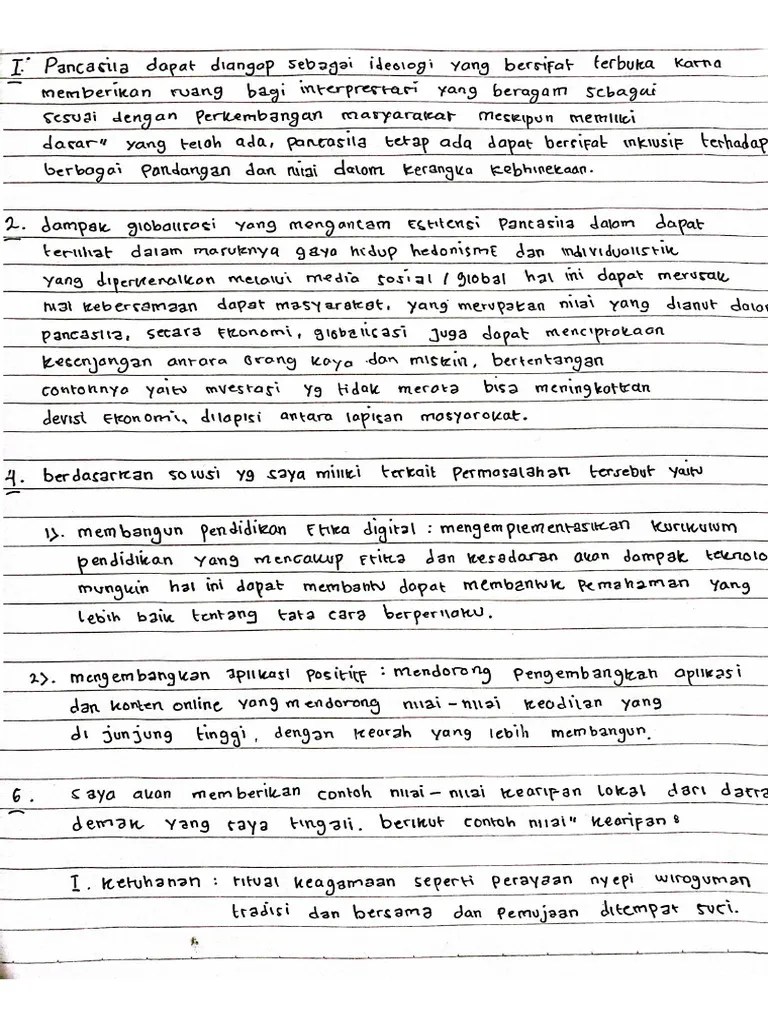 I. Pancasila dapat diangap sebagai ideologi yang bersifat terbuka karna
memberikan ruang bagi interprestasi yang beragam sebagai
sesuai dengan perkembangan masyarakat meskipun memiliki
dasar" yang telah ada, pancasila tetap ada dapat bersifat inklusif terhadap
berbagai pandangan dan nilai dalam kerangka kebhinekaan.
2. dampak globalisasi yang mengancam Estitensi pancasila dalam dapat
terlihat dalam masuknya gaya hidup hedonisme dan individualistik
yang diperkenalkan melalui media sosial / global hal ini dapat merusak
nilai kebersamaan dapat masyarakat, yang merupakan nilai yang dianut dalam
pancasila, secara Ekonomi, globalisasi juga dapat menciptakaan
kesenjangan antara orang kaya dan miskin, bertentangan
contohnya yaitu investasi yg tidak merata bisa meningkatkan
devisi Ekonomi, dilapisi antara lapisan masyarakat.
4. berdasarkan solusi yg saya miliki terkait permasalahan tersebut yaitu
1). membangun pendidikan Etika digital : mengemplementasikan kurikulum
pendidikan yang mencakup Etika dan kesadaran akan dampak teknolo
mungkin hal ini dapat membantu dapat membantuk pemahaman yang
lebih baik tentang tata cara berperilaku.
2). mengembangkan aplikasi positif : mendorong pengembangkan aplikasi
dan konten online yang mendorong nilai-nilai keadilan yang
di junjung tinggi, dengan kearah yang lebih membangun.
6. saya akan memberikan contoh nilai-nilai kearifan lokal dari daera
demak yang saya tingali. berikut contoh nilai" kearifan :
I. ketuhanan : ritual keagamaan seperti perayaan nyepi wiroguman
tradisi dan bersama dan pemujaan ditempat suci.